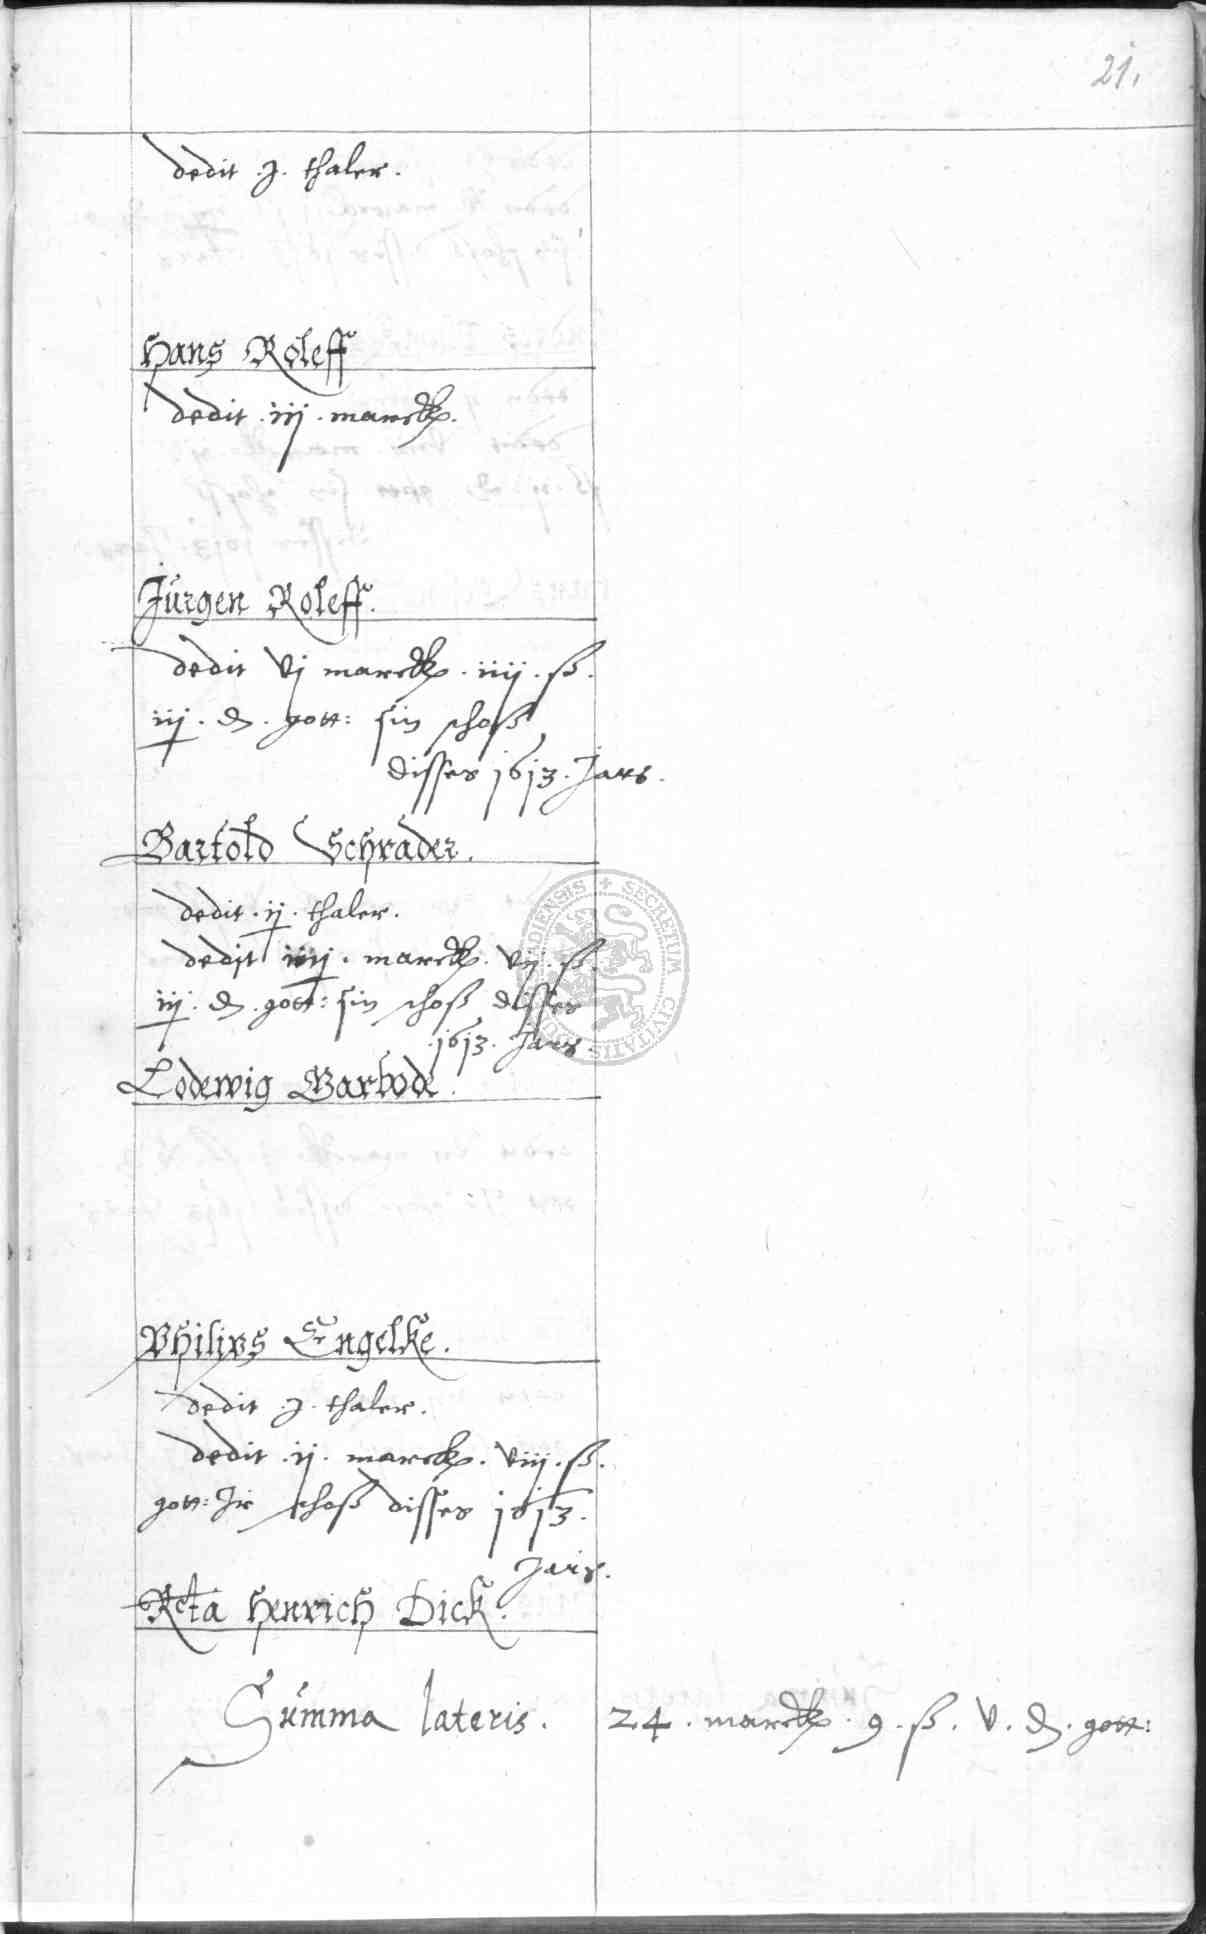 21.
dedit .j. thaler.
Hans Roleff
dedit .iij. marck.
Jürgen Roleff.
dedit vj marck. iiij. ß.
iij. d. gott: sin schoß
disses 1613. Jars.
Bartold Schrader.
dedit .ij. thaler.
dedit iiij. marck. vij. ß.
iij. d. gott: sin schoß disses
.1613. Jars.
Lodewig Barbode.
Philips Engelke.
dedit .j. thaler.
dedit .ij. marck. viij. ß.
gott: Jr schoß disses 1613.
Jars.
Rcta Henrich Dick.
Summa lateris. 24. marck. 9. ß. v. d. gott:
SECRETUM CIVITATIS